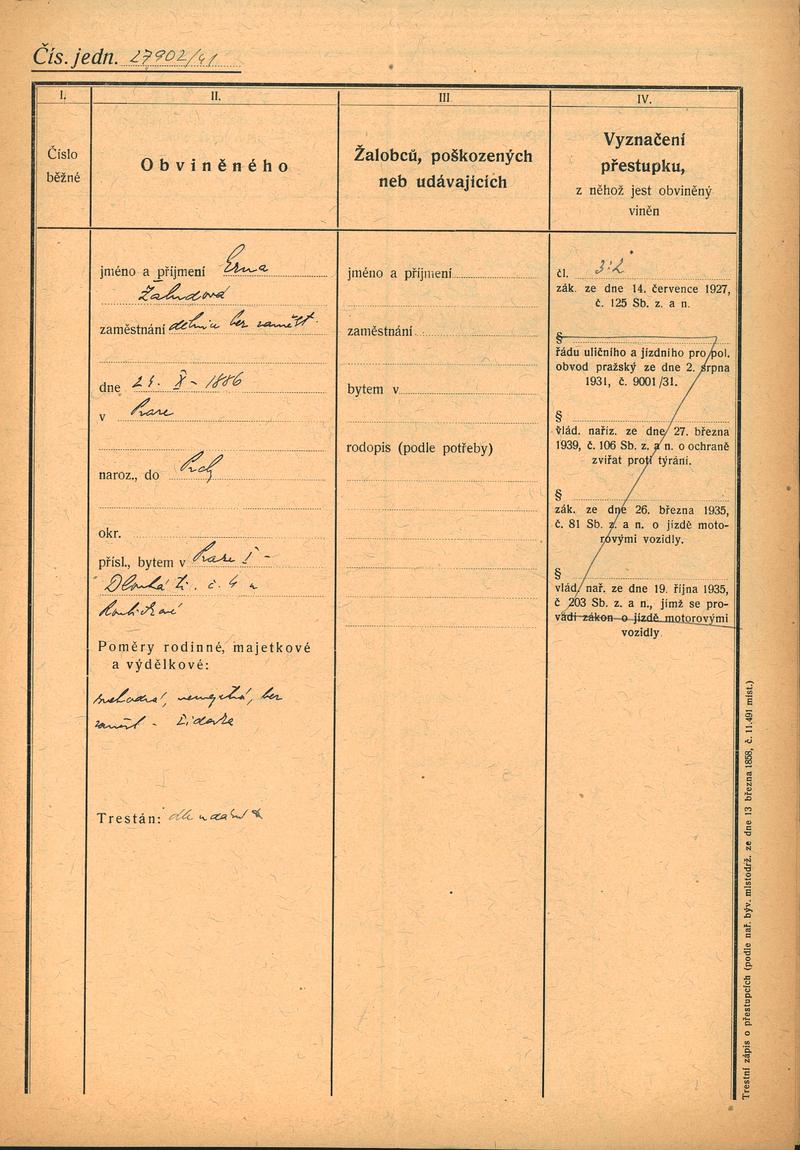 Čís. jedn. 27902/41
I.
II.
III
IV.
Číslo
běžné
Obviněného
Žalobců, poškozených
neb udávajících
Vyznačení
přestupku,
z něhož jest obviněný
viněn
jméno a příjmení Erna
Žaludová
zaměstnání dělnice bez zaměst.
dne 24. X - 1886
v Praze
naroz., do
okr.
přísl., bytem v Praze I -
Dlouhá tř. č. u
Poměry rodinné, majetkové
a výdělkové:
bez
zaměst - židovka
Trestán: dle udání
jméno a příjmení
zaměstnání
bytem v
rodopis (podle potřeby)
čl. 3:2
zák. ze dne 14. července 1927,
č. 125 Sb. z. a n.
§
řádu uličního a jízdního pro pol.
obvod pražský ze dne 2. srpna
1931, č. 9001/31.
§
vlád. naříz. ze dne 27. března
1939, č. 106 Sb. z. a n. o ochraně
zvířat proti týrání.
§
zák. ze dne 26. března 1935,
č. 81 Sb. z. a n. o jízdě moto-
rovými vozidly.
§
vlád. nař. ze dne 19. října 1935,
č 203 Sb. z. a n., jímž se pro-
vádí zákon o jízdě motorovými
vozidly.
Trestní zápis o přestupcích (podle nař. býv. místodrž. ze dne 13 března 1858, č. 11.491 míst.)